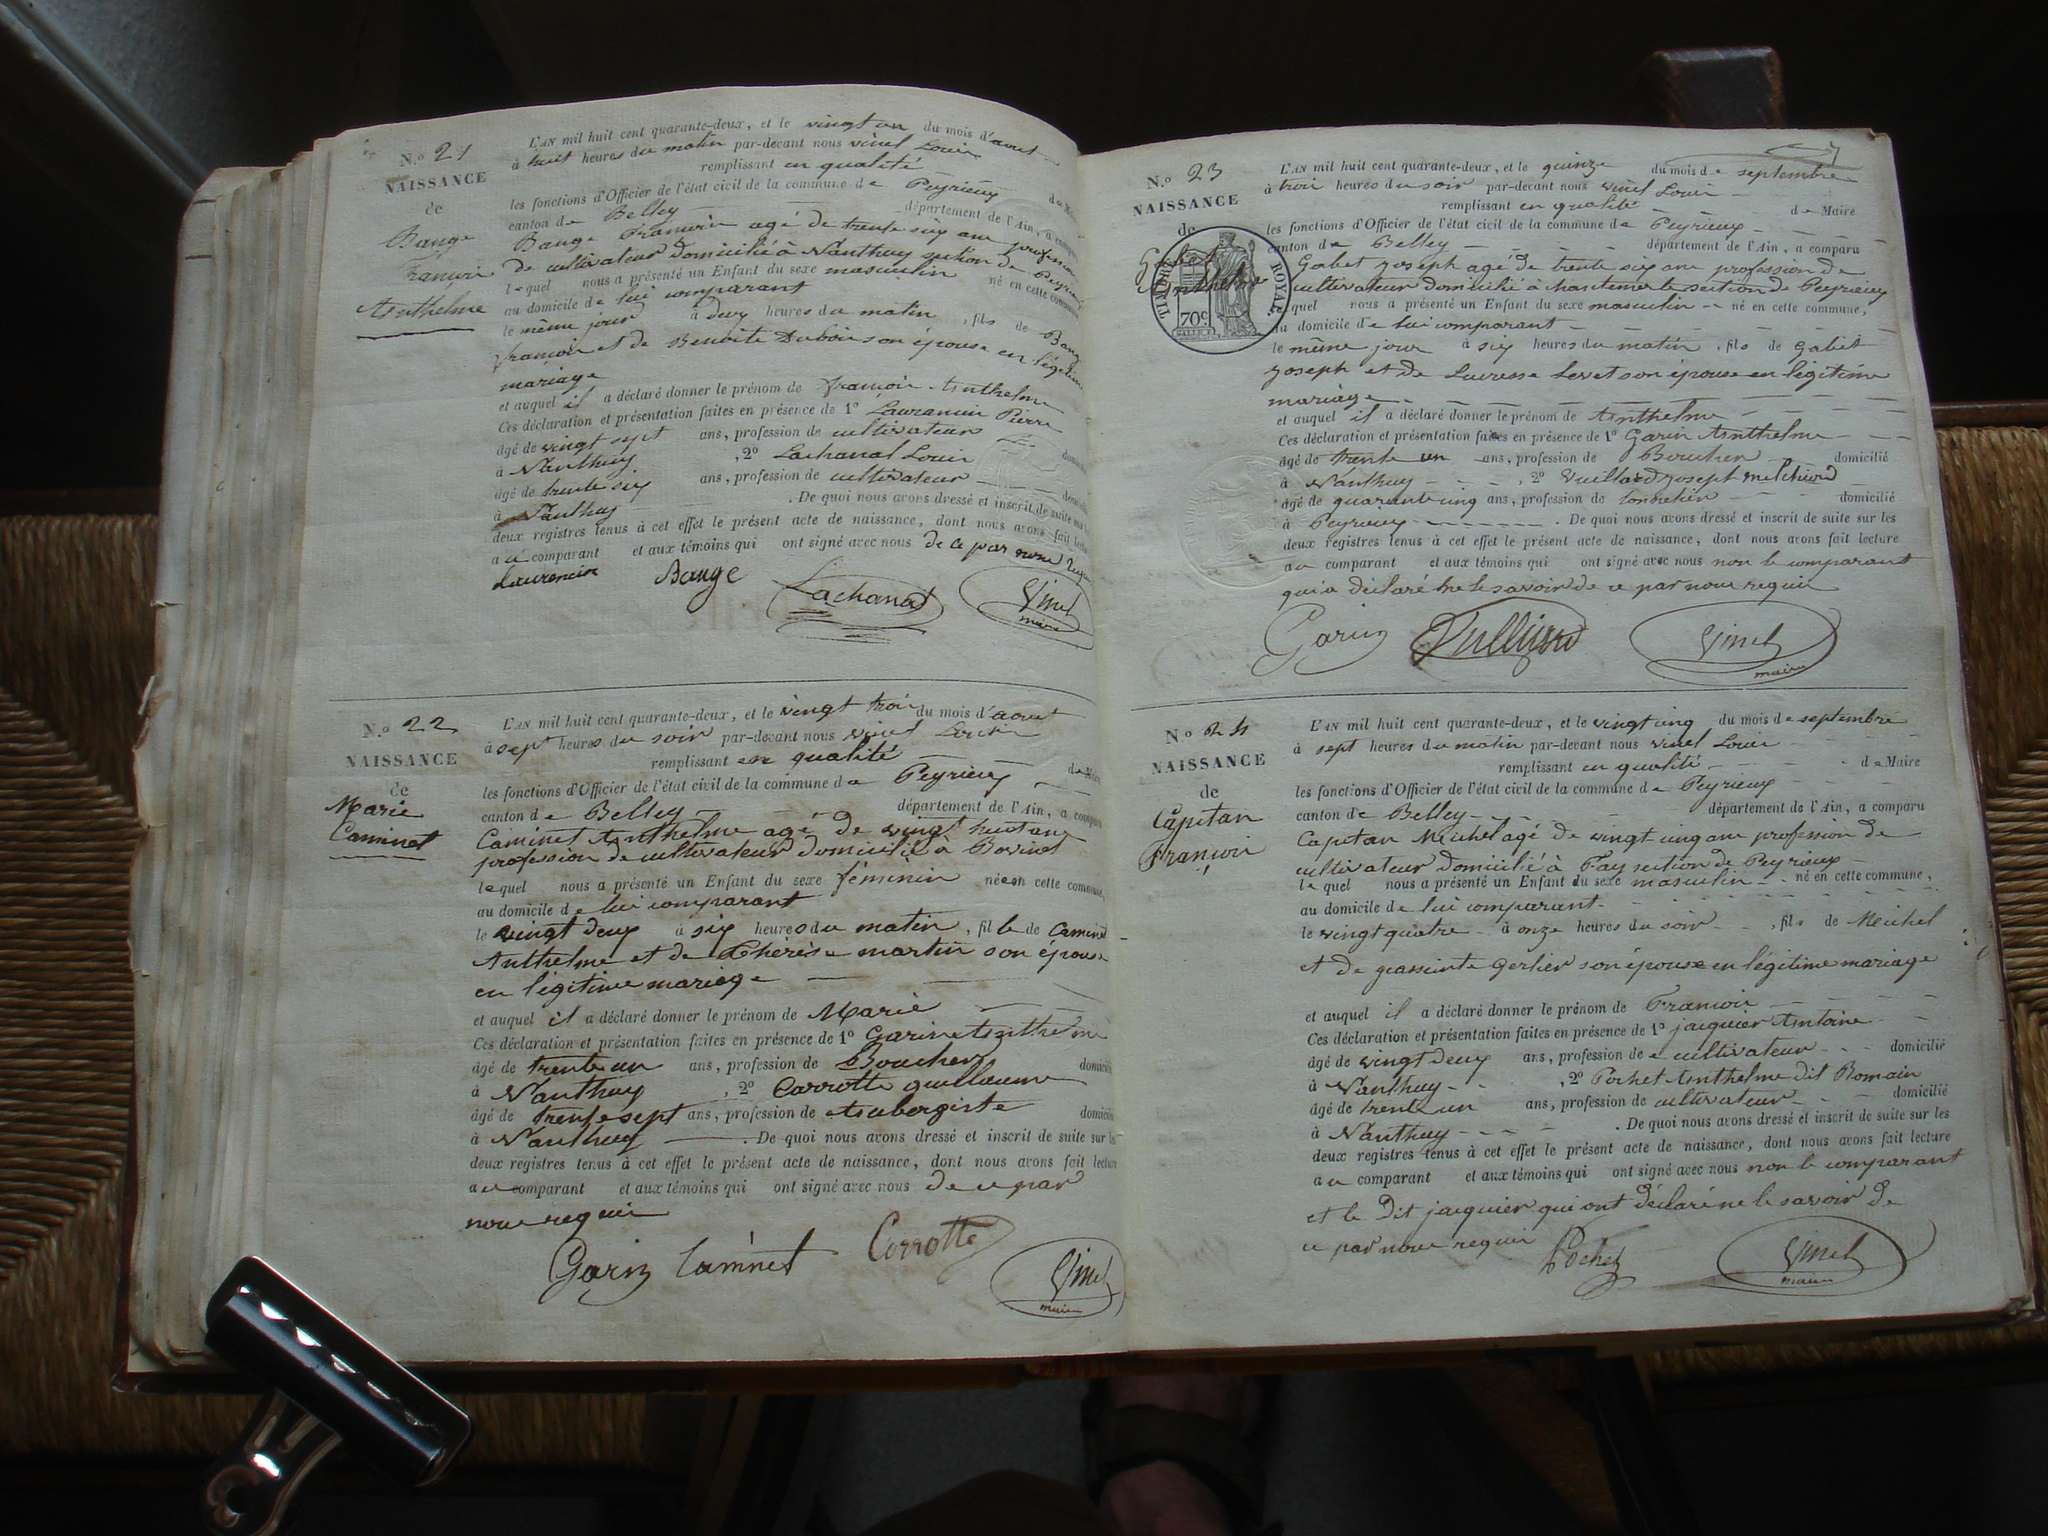 N.o 21
NAISSANCE
de
Bange
François
Anthelme
L'AN mil huit cent quarante-deux, et le vingt un du mois d'aout
à huit heures du matin par-devant nous vinel Louis
remplissant en qualité
les fonctions d'Officier de l'état civil de la commune de Peyrieux
canton de Belley département de l'Ain, a comparu
Bange François agé de trente six ans profession
de cultivateur domicilié à Nanthuy section de Peyrieux
lequel nous a présenté un Enfant du sexe masculin né en cette commune
au domicile de lui comparant
le même jour à deux heures du matin, fils de Bange
françois et de Benoite Dubois son épouse en légitime
mariage
et auquel il a déclaré donner le prénom de françois Anthelme
Ces déclaration et présentation faites en présence de 1o Laurancin Pierre
âgé de vingt sept ans, profession de cultivateur
à Nanthuy, 2o Lachanal Louis
âgé de trente six ans, profession de cultivateur
à Nanthuy. De quoi nous avons dressé et inscrit de suite sur les
deux registres tenus à cet effet le présent acte de naissance, dont nous avons fait lecture
au comparant et aux témoins qui ont signé avec nous de ce par nous requis
Laurencin Bange Lachanal Vinel
maire
N.o 22
NAISSANCE
de
Marie
Caminet
L'AN mil huit cent quarante-deux, et le vingt trois du mois d'aout
à sept heures du soir par-devant nous vinel Louis
remplissant en qualité de Maire
les fonctions d'Officier de l'état civil de la commune de Peyrieux
canton de Belley département de l'Ain, a comparu
Caminet Anthelme agé de vingt huit ans
profession de cultivateur domicilié a Bovinet
lequel nous a présenté un Enfant du sexe féminin née en cette commune,
au domicile de lui comparant
le vingt deux à six heures du matin, fille de Caminet
Anthelme et de Thérèse martin son épouse
en légitime mariage
et auquel il a déclaré donner le prénom de Marie
Ces déclaration et présentation faites en présence de 1o Garin Anthelme
âgé de trente un ans, profession de Boucher domicilié
à Nanthuy, 2o Corrotte guillaume
âgé de trente sept ans, profession de Aubergiste domicilié
à Nanthuy. De quoi nous avons dressé et inscrit de suite sur les
deux registres tenus à cet effet le présent acte de naissance, dont nous avons fait lecture
au comparant et aux témoins qui ont signé avec nous de ce par
nous requis
Garin Caminet Corrotte Vinel
maire
N.o 23
NAISSANCE
de
Gabet
Anthelme
TIMBRE ROYAL.
70c
L'AN mil huit cent quarante-deux, et le quinze du mois de septembre
à trois heures du soir par-devant nous vinel Louis
remplissant en qualité de Maire
les fonctions d'Officier de l'état civil de la commune de Peyrieux
canton de Belley département de l'Ain, a comparu
Gabet joseph agé de trente six ans profession de
cultivateur domicilié à section de Peyrieux
quel nous a présenté un Enfant du sexe masculin né en cette commune,
au domicile de lui comparant
le même jour à six heures du matin, fils de Gabet
joseph et de son épouse en légitime
mariage
et auquel il a déclaré donner le prénom de Anthelme
Ces déclaration et présentation faites en présence de 1o Garin Anthelme
âgé de trente un ans, profession de Boucher domicilié
à Nanthuy, 2o Vuillard joseph melchiord
âgé de quarante cinq ans, profession de tonnelier domicilié
à Peyrieux. De quoi nous avons dressé et inscrit de suite sur les
deux registres tenus à cet effet le présent acte de naissance, dont nous avons fait lecture
au comparant et aux témoins qui ont signé avec nous non le comparant
qui a déclaré ne le savoir de ce par nous requis
Garin Vulliard Vinel
maire
N.o 24
NAISSANCE
de
Capitan
François
L'AN mil huit cent quarante-deux, et le vingt cinq du mois de septembre
à sept heures du matin par-devant nous vinel Louis
remplissant en qualité de Maire
les fonctions d'Officier de l'état civil de la commune de Peyrieux
canton de Belley département de l'Ain, a comparu
Capitan Michel agé de vingt cinq ans profession de
cultivateur domicilié à Fay section de Peyrieux
lequel nous a présenté un Enfant du sexe masculin né en cette commune,
au domicile de lui comparant
le vingt quatre à onze heures du soir, fils de Michel
et de jassinte Gerlier son épouse en légitime mariage
et auquel il a déclaré donner le prénom de François
Ces déclaration et présentation faites en présence de 1o jacquier Antoine
âgé de vingt deux ans, profession de cultivateur domicilié
à Nanthuy, 2o Pochet Anthelme dit Romain
âgé de trente un ans, profession de cultivateur domicilié
à Nanthuy. De quoi nous avons dressé et inscrit de suite sur les
deux registres tenus à cet effet le présent acte de naissance, dont nous avons fait lecture
au comparant et aux témoins qui ont signé avec nous non le comparant
et le Dit jacquier qui ont déclaré ne le savoir de
ce par nous requis Pochet Vinel
maire